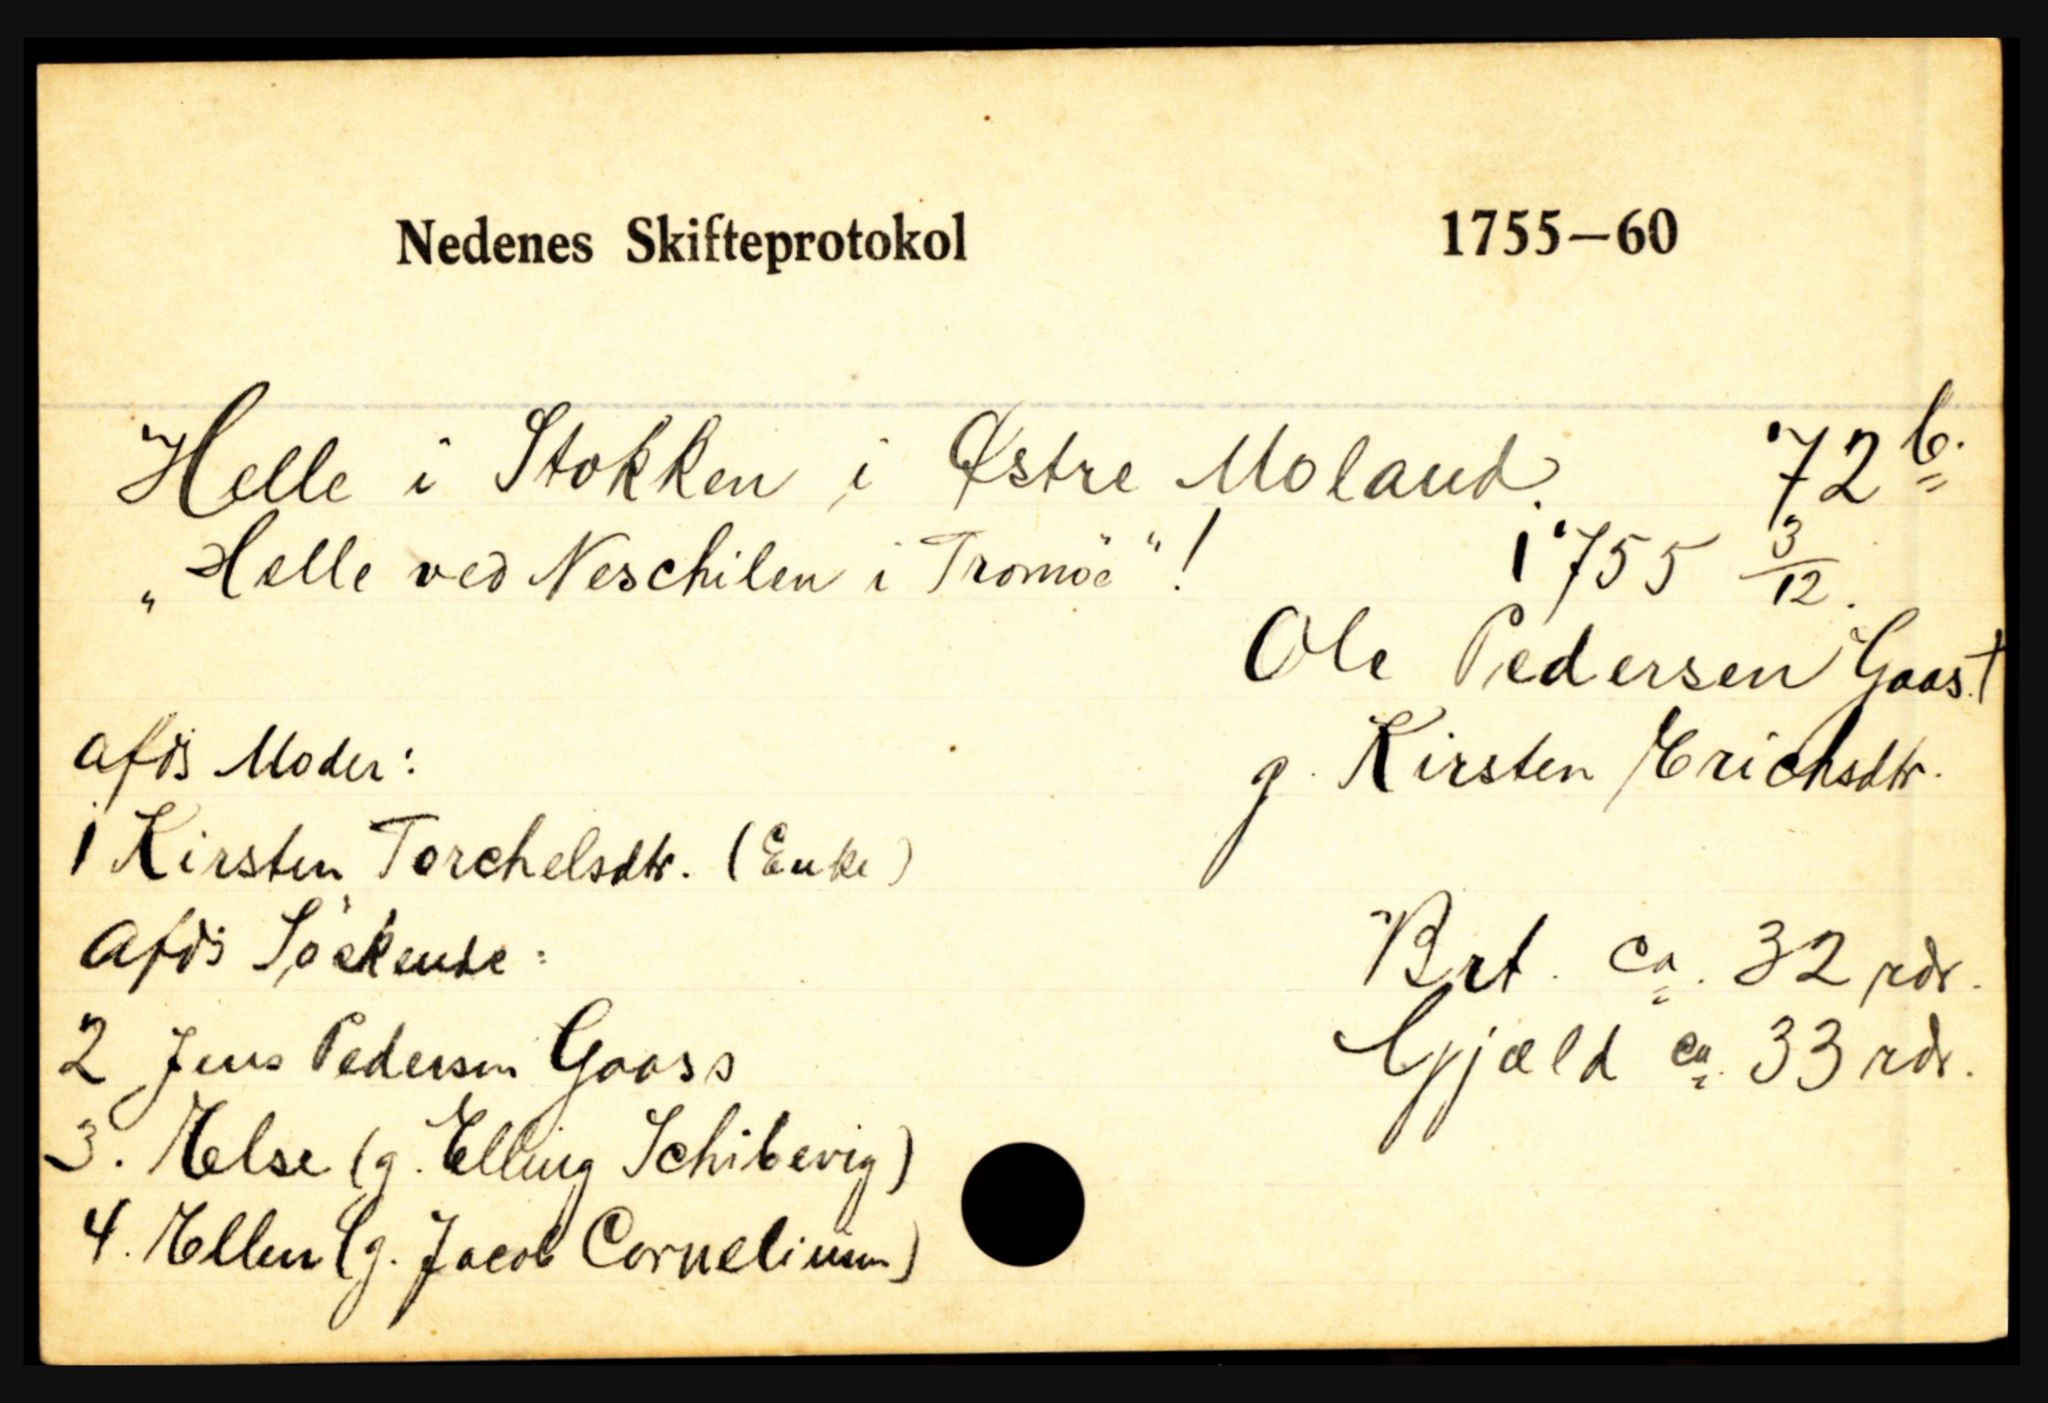 Nedenes Skifteprotokol 1755—60
Helle i Stokken i Østre Moland. 72 b.
„Helle ved Neschilen i Tromöe"! 1755 3/12.
Ole Pedersen Gaas †
g. Kirsten Erichsdtr.
afds Moder:
1 Kirsten Torchelsdtr. (Enke)
Afds Söskende:
2 Jens Pedersen Gaass
3. Else (g. Elling Schibevig)
4. Ellen (g. Jacob Corneliusen)
Brt. ca. 32 rdr.
Gjæld ca. 33 rdr.